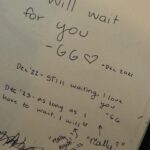 Will wait
for you
-GG ♡ -Dec 2021
Dec '22 - Still waiting, I love
you -GG
Dec '23: as long as I
have to wait I will
"Really?"